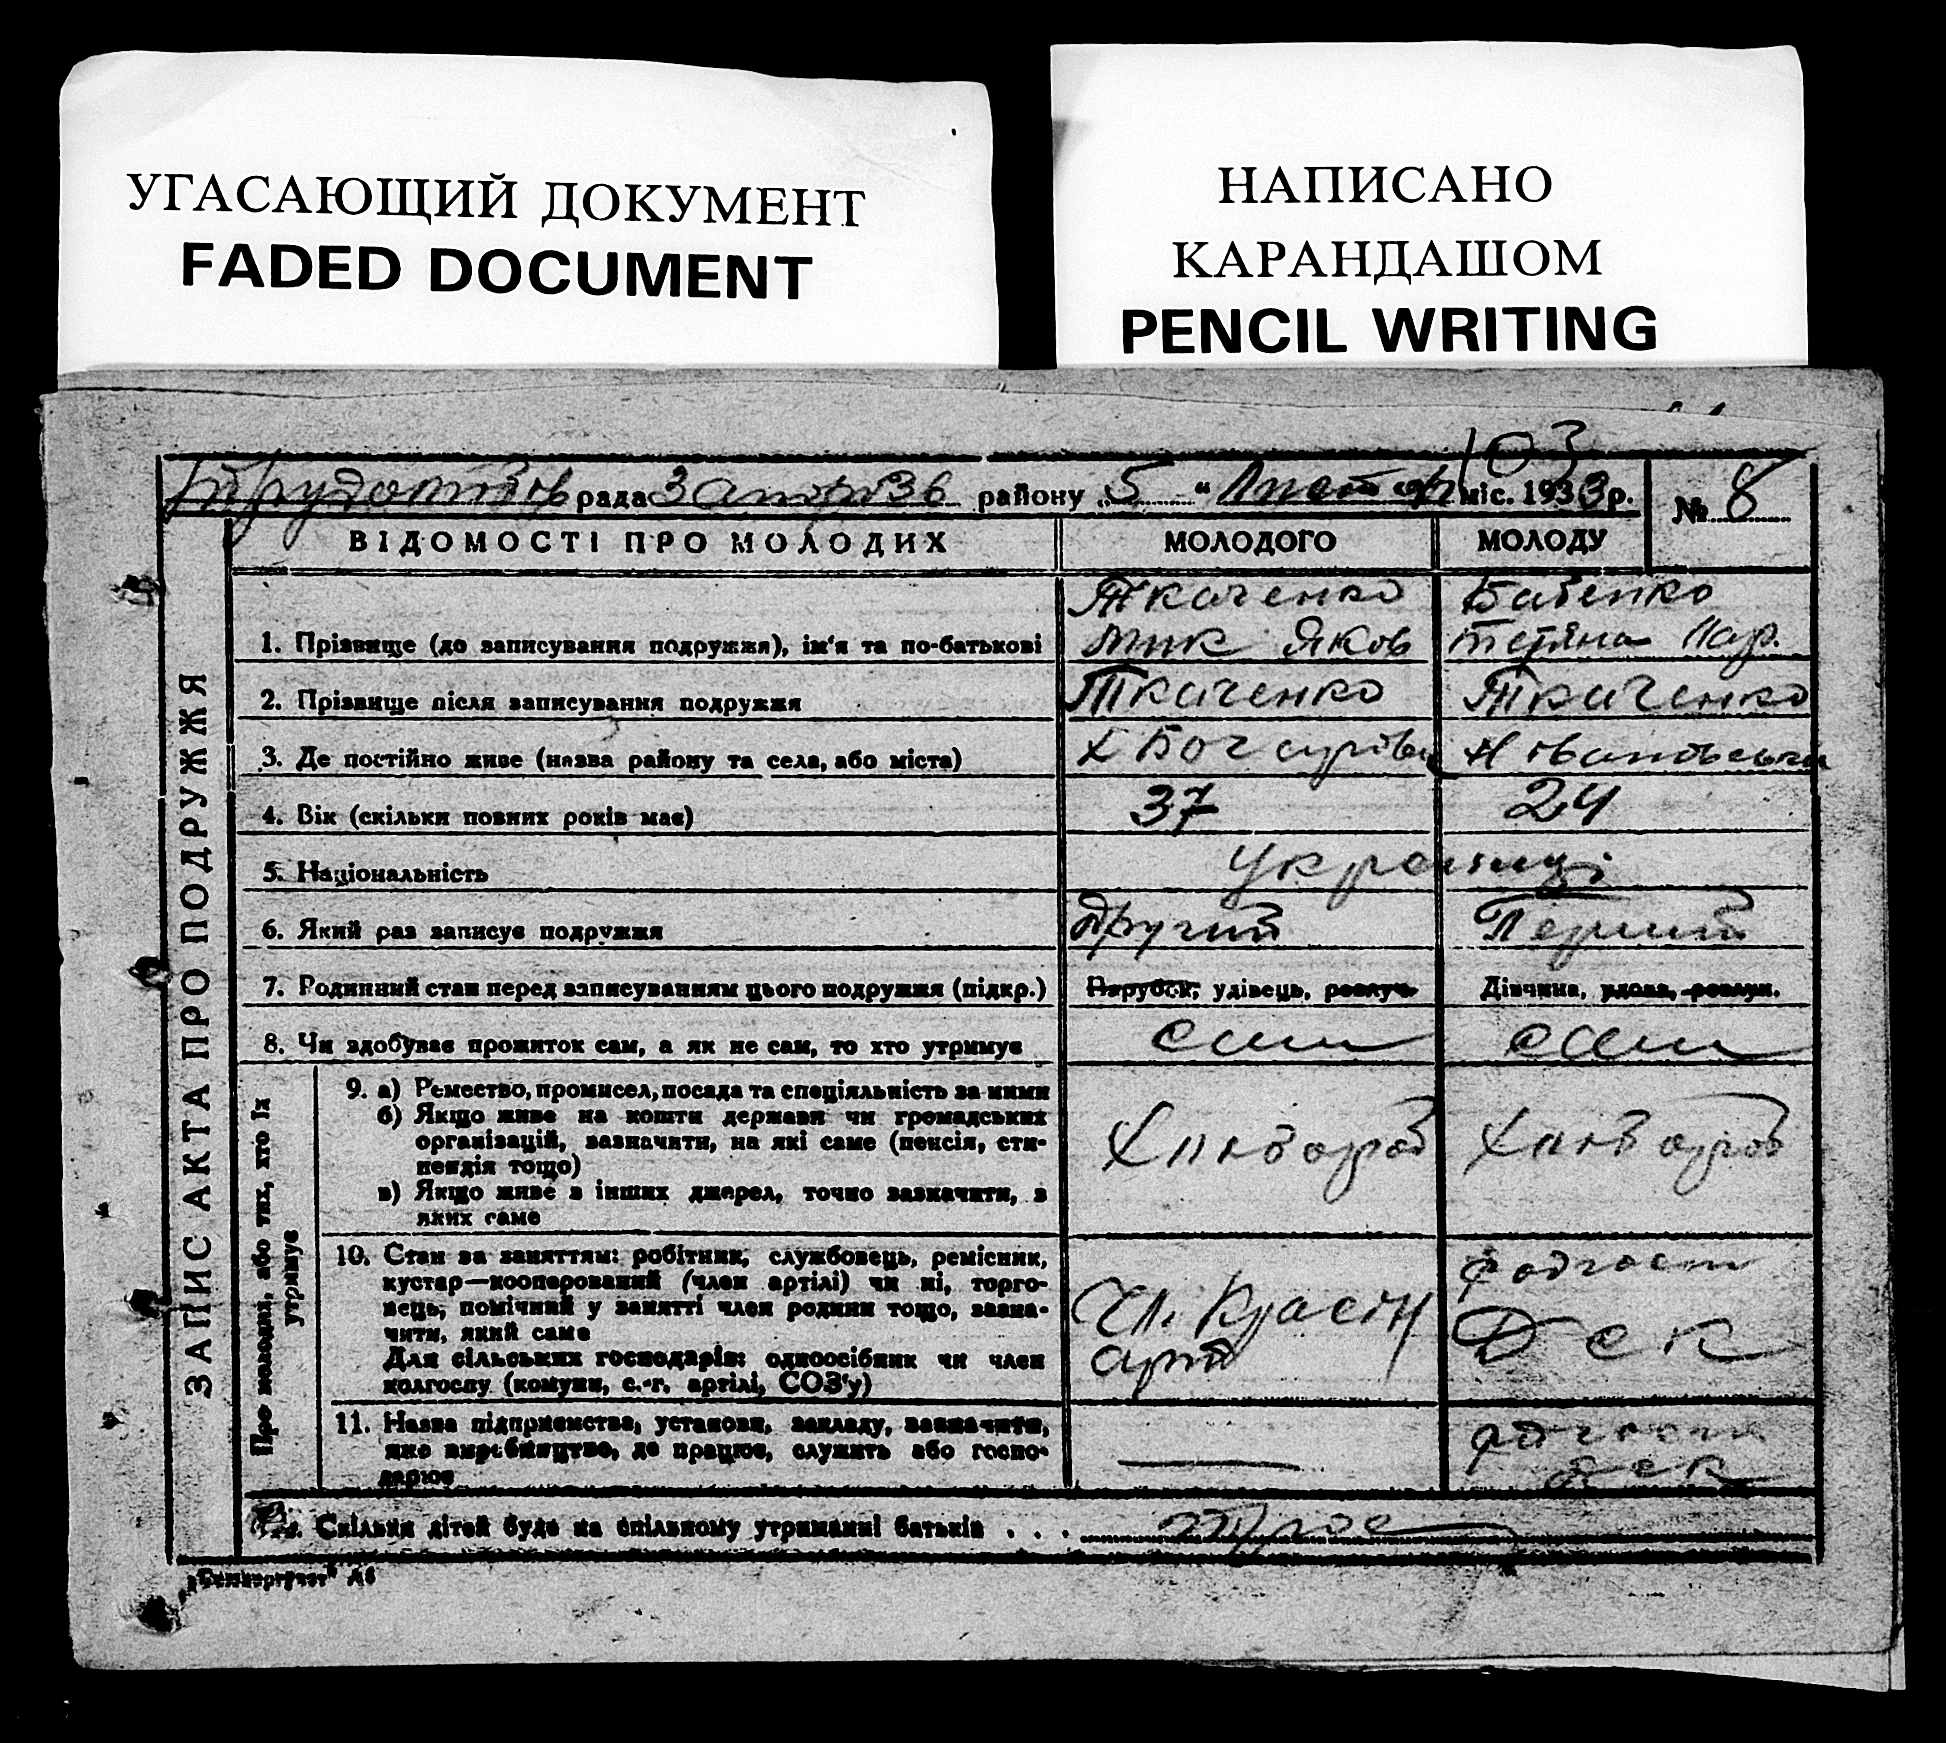 УГАСАЮЩИЙ ДОКУМЕНТ
FADED DOCUMENT
НАПИСАНО
КАРАНДАШОМ
PENCIL WRITING
103
рада району „5“ міс. 1933 р. № 8
ЗАПИС АКТА ПРО ПОДРУЖЖЯ
ВІДОМОСТІ ПРО МОЛОДИХ МОЛОДОГО МОЛОДУ
Ткаченко Бабенко
1. Прізвище (до записування подружжя), ім'я та по-батькові Мик Яков Тетяна
2. Прізвище після записування подружжя Ткаченко Ткаченко
3. Де постійно живе (назва району та села, або міста) Х
4. Вік (скільки повних років має) 37 24
5. Національність Українці
6. Який раз записує подружжя Другий Перший
7. Родинний стан перед записуванням цього подружжя (підкр.) Парубок, удівець, розлуч. Дівчина, удова, розлуч.
8. Чи здобуває прожиток сам, а як не сам, то хто утримує сам сам
Про молодих, або тих, хто їх утримує
9. а) Ремество, промисел, посада та спеціяльність за ними
б) Якщо живе на кошти держави чи громадських
організацій, зазначити, на які саме (пенсія, сти-
пендія тощо)
в) Якщо живе з інших джерел, точно зазначити, з
яких саме
Хлібороб Хлібороб
10. Стан за заняттям: робітник, службовець, ремісник,
кустар—кооперований (член артілі) чи ні, торго-
вець, помічний у занятті член родини тощо, зазна-
чити, який саме
Для сільських господарів: одноосібник чи член
колгоспу (комуни, с.-г. артілі, СОЗ'у)
Чл.
арт
11. Назва підприємства, установи, закладу, зазначити,
яке виробництво, де працює, служить або госпо-
дарює
Скільки дітей буде на спільному утриманні батьків . . . троє